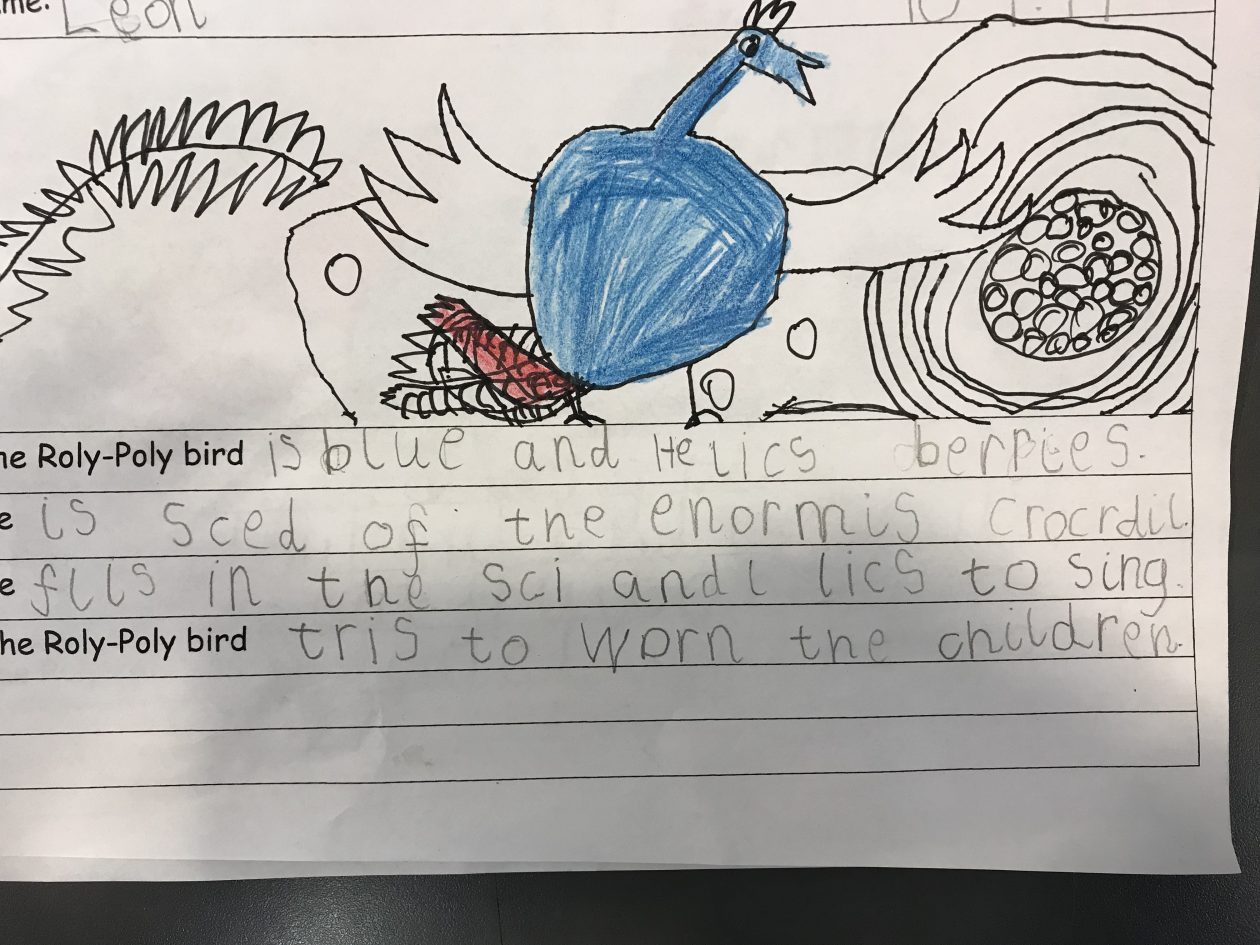 me: Leon
he Roly-Poly bird is blue and He lics berries.
e is Sced of the enormis Crocrdil.
e flis in the Sci and lics to sing.
he Roly-Poly bird tris to worn the children.